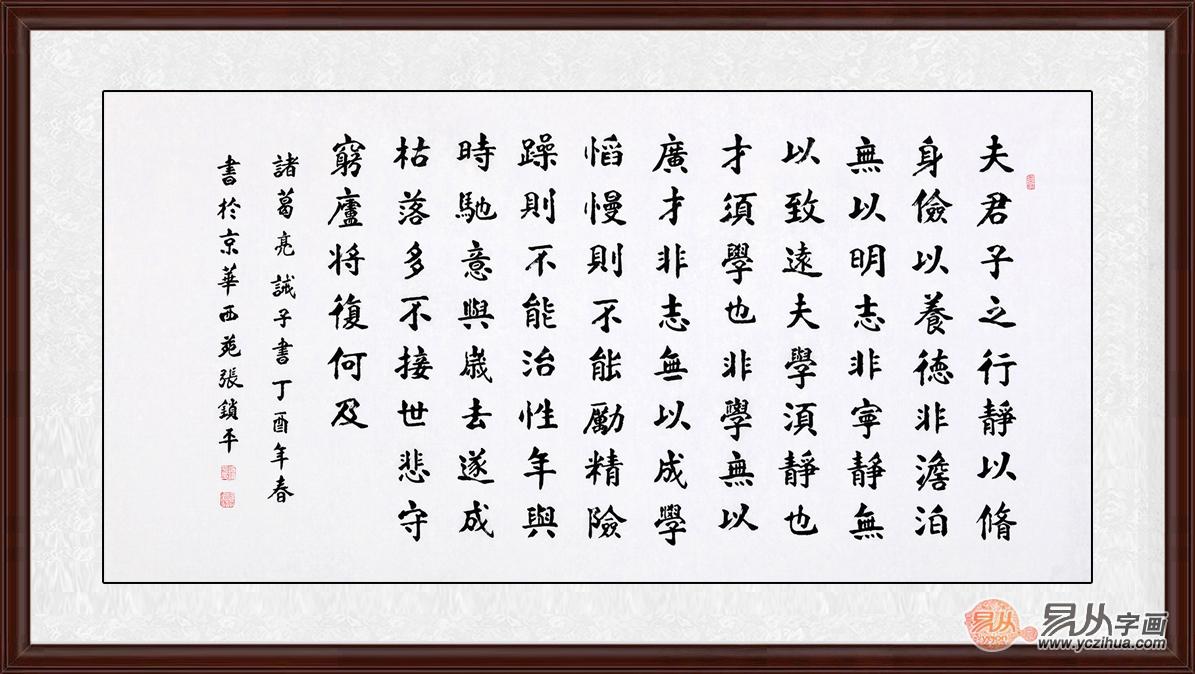 夫君子之行靜以脩
身儉以養德非澹泊
無以明志非寧靜無
以致遠夫學須靜也
才須學也非學無以
廣才非志無以成學
慆慢則不能勵精險
躁則不能治性年與
時馳意與歲去遂成
枯落多不接世悲守
窮廬將復何及
諸葛亮誡子書丁酉年春
書於京華西苑張鎖平
易从
yycon
易从字画
www.yczihua.com